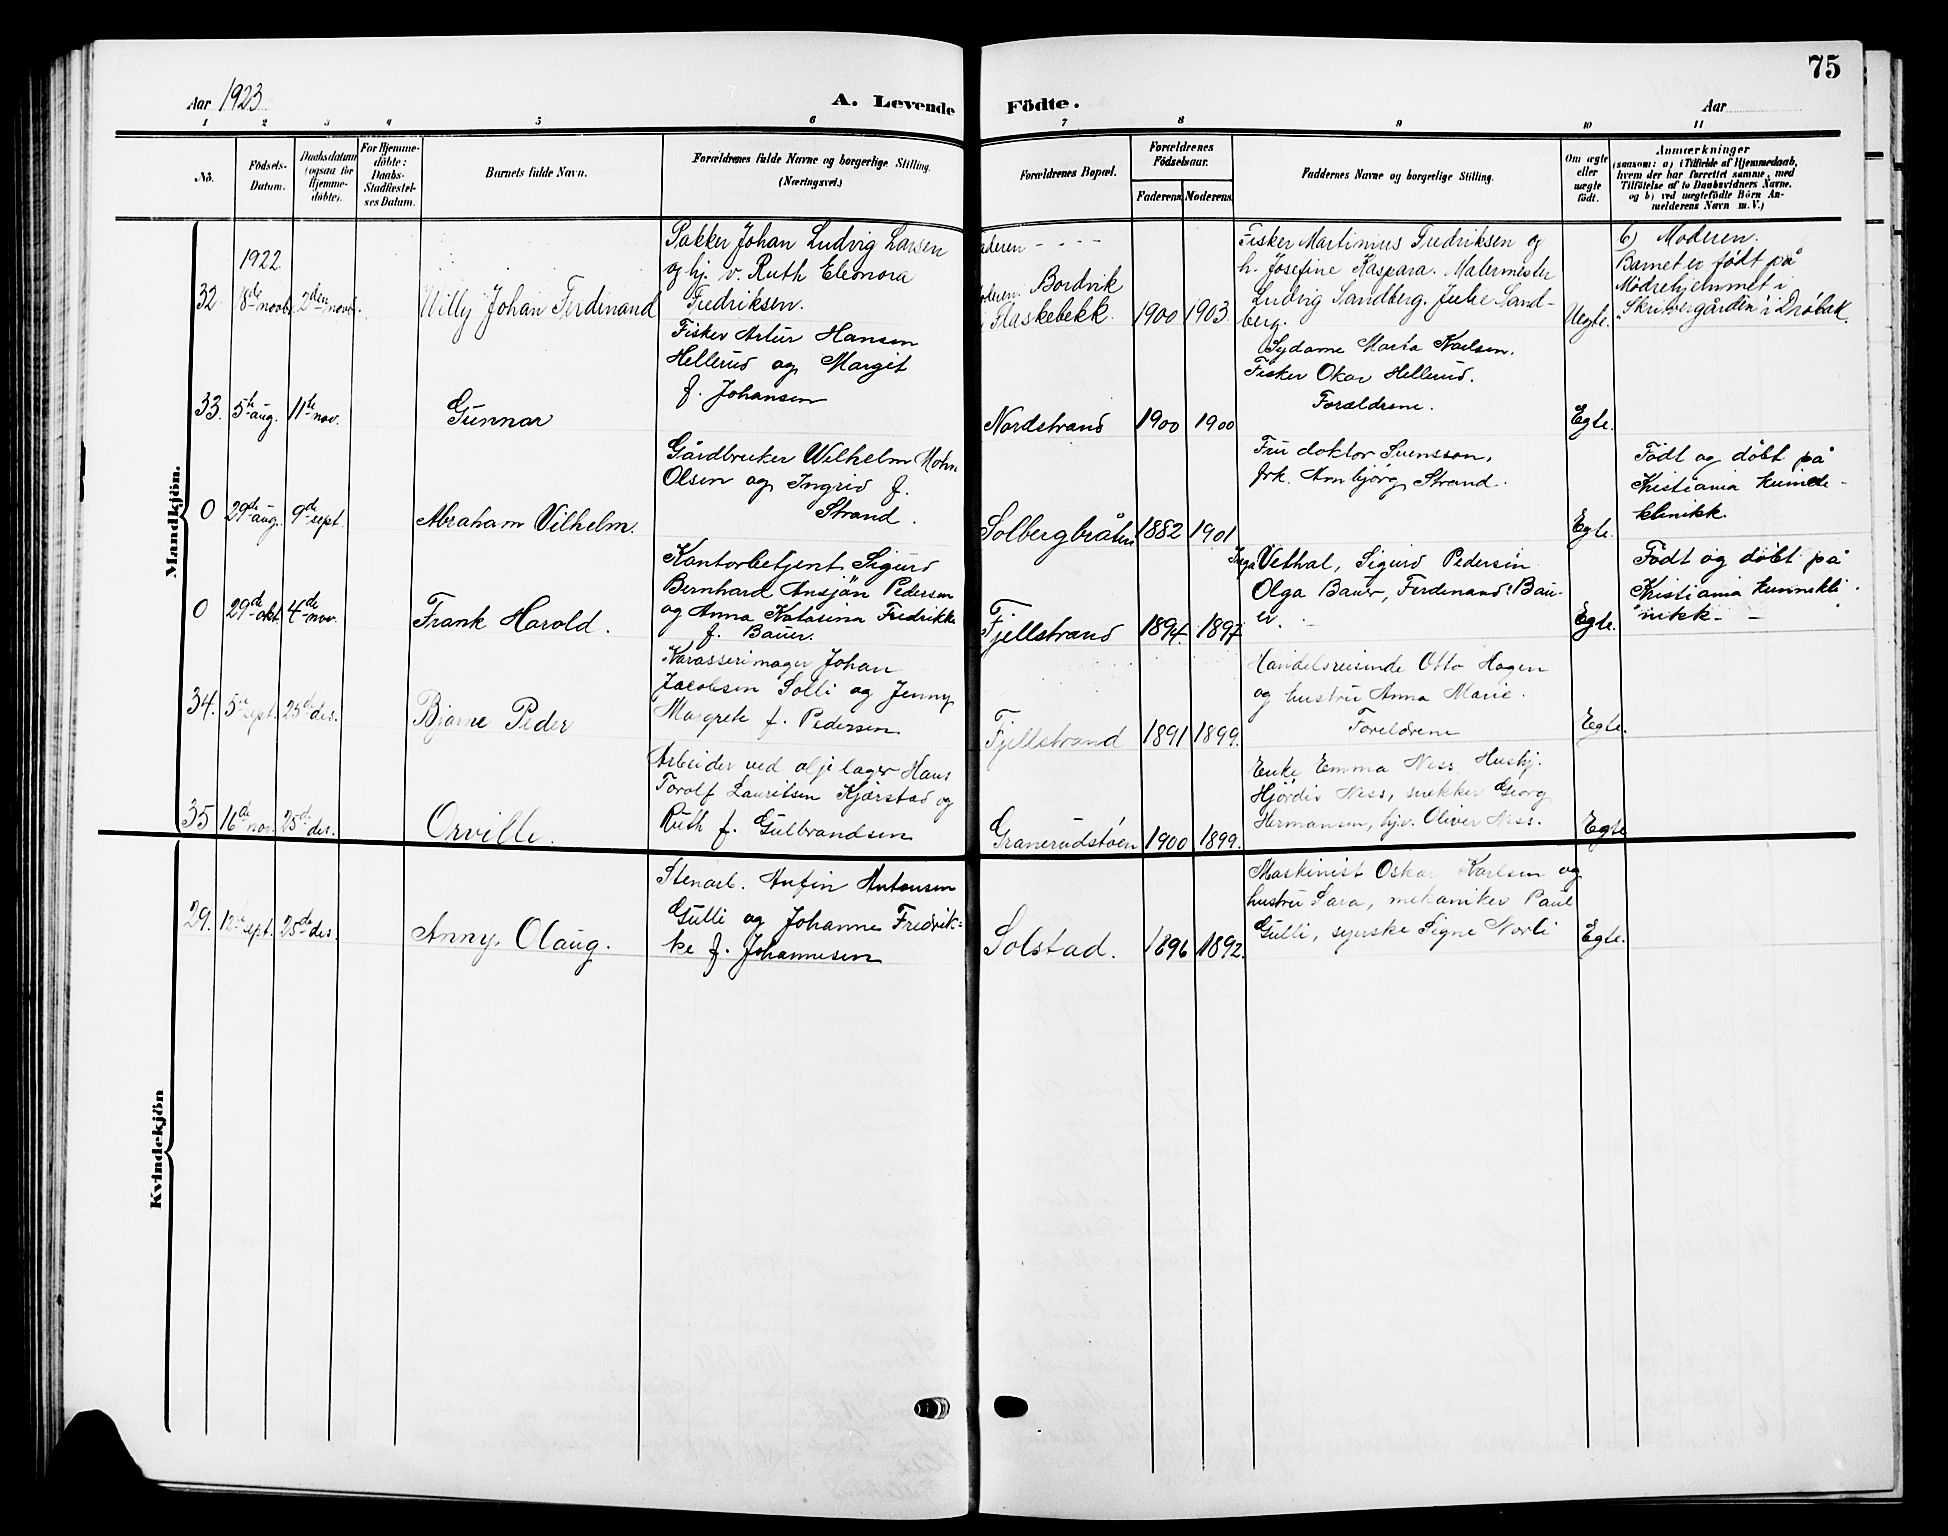 75
Aar 1923
A. Levende Födte.
Aar
1 2 3 4 5 6 7 8 9 10 11
No.
Födsels-
Datum.
Daabsdatum
(ogsaa for
Hjemme-
döbte).
For Hjemme-
döbte:
Daabs-
Stadfæstel-
ses Datum.
Barnets fulde Navn.
Forældrenes fulde Navne og borgerlige Stilling.
(Næringsvei.)
Forældrenes Bopæl.
Forældrenes
Födselsaar.
Faderens Moderens
Faddernes Navne og borgerlige Stilling.
Om ægte
eller
uægte
födt.
Anmærkninger
(saasom: a) i Tilfælde af Hjemmedaab,
hvem der har forrettet samme, med
Tilföielse af to Daabsvidners Navne,
og b) ved uægtefödte Börn An-
melderens Navn m. V.)
Mandkjön.
1922
32 18de novb. 2den novb.
Willy Johan Ferdinand
Pakker Johan Ludvig Larsen
og hj. v. Ruth Eleonora
Fredriksen.
aderen - - - -
Bordvik
Flaskebekk.
1900 1903.
Fisker Martinius Fredriksen og
h. Josefine Kaspara. Malermester
Ludvig Sandberg. Julie Sand-
berg.
Uegte.
b) Moderen.
Barnet er født på
Mødrehjemmet i
"Skrivergården" i Drøbak.
33. 5te aug. 11te nov.
Gunnar
Fisker Artur Hansen
Hellerud og Margit
f. Johansen
Nordstrand
1900 1900
Sydame Marta Karlsen.
Fisker Okar Hellerud.
Foreldrene.
Egte.
0 29de aug. 9de sept.
Abraham Vilhelm.
Gårdbruker Wilhelm Mohn
Olsen og Ingrid f.
Strand.
Solbergbråten
1882 1901
Fru doktor Svensson,
frk. Annbjørg Strand.
Egte.
Født og døbt på
Kristiania kvinde-
klinikk.
0 29de okt. 4de nov.
Frank Harold.
Kontorbetjent Sigurd
Bernhard Ansjøn Pedersen
og Anna Katarina Fredrikke
f. Bauer.
Fjellstrand
1894. 1897
Inga Vethal, Sigurd Pedersen
Olga Bauer, Ferdinand Bau-
er.
Egte.
Født og døbt på
Kristiania kvinnekli-
nikk
34. 5te sept. 25de des.
Bjarne Peder
Karosserimager Johan
Jacobsen Solli og Jenny
Margrete f. Pedersen
Fjellstrand
1891 1899.
Handelsreisende Otto Hagen
og hustru Anna Marie.
Foreldrene
Egte.
35 16de nov. 25de des.
Orville.
Arbeider ved oljelager Hans
Torolf Lauritsen Kjærstad og
Ruth f. Gulbrandsen
Granerudstøen
1900 1899.
Enke Emma Ness, Hushj.
Hjørdis Ness, snekker Georg
Hermansen, hjv. Oliver Ness.
Egte
Kvindekjön
29. 12te sept. 25de des.
Anny Olaug.
Stenarb. Anfin Antonsen
Gulli og Johanne Fredrik-
ke f. Johannesen
Solstad.
1896 1892.
Maskinist Oskar Karlsen og
hustru Sara, mekaniker Paul
Gulli, syerske Signe Norli
Egte.